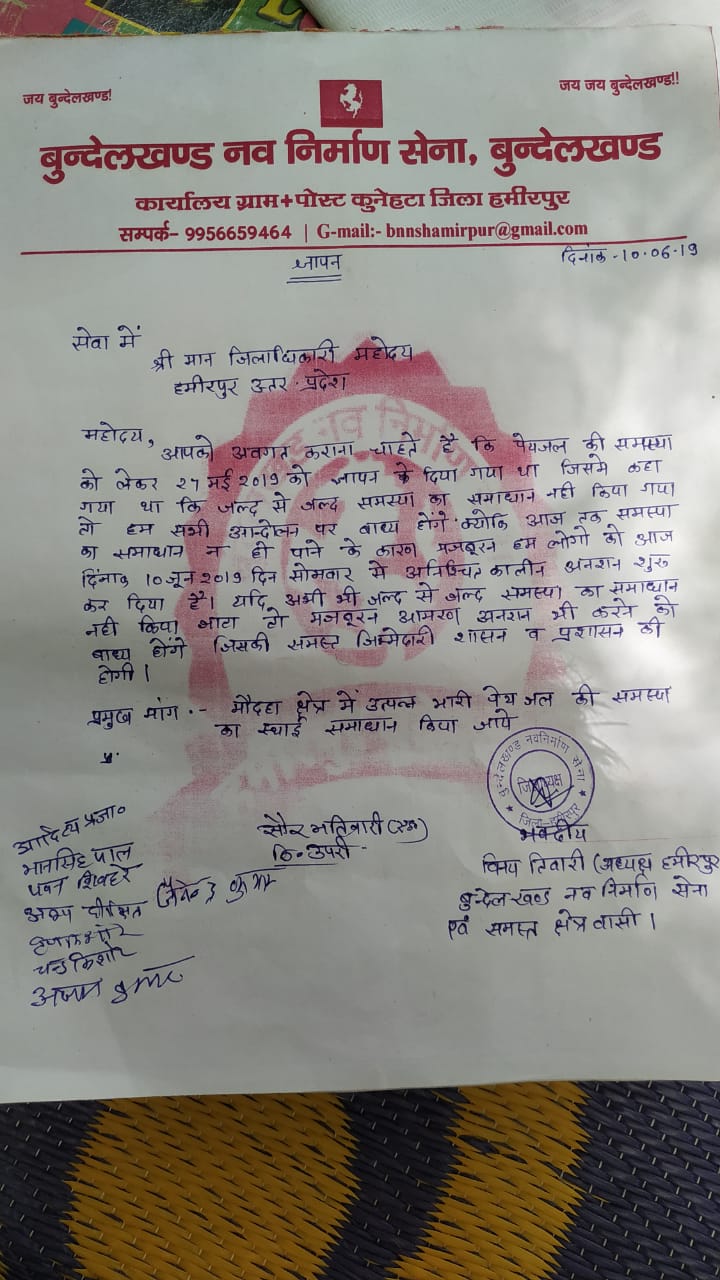 जय बुन्देलखण्ड!
जय जय बुन्देलखण्ड!!
बुन्देलखण्ड नव निर्माण सेना, बुन्देलखण्ड
कार्यालय ग्राम+पोस्ट कुनेहटा जिला हमीरपुर
सम्पर्क- 9956659464 | G-mail:- bnnshamirpur@gmail.com
ज्ञापन
दिनांक -10.06.19
सेवा में
श्री मान जिलाधिकारी महोदय
हमीरपुर उत्तर प्रदेश
महोदय,
आपको अवगत कराना चाहते है कि पेयजल की समस्या
को लेकर 27 मई 2019 को ज्ञापन के दिया गया था जिसमे कहा
गया था कि जल्द से जल्द समस्या का समाधान नही किया गया
तो हम सभी आन्दोलन पर बाध्य होंगे क्योकि आज तक समस्या
का समाधान न ही पाने के कारण मजबूरन हम लोगो को आज
दिनांक 10 जून 2019 दिन सोमवार से अनिश्चित कालीन अनशन शुरू
कर दिया है। यदि अभी भी जल्द से जल्द समस्या का समाधान
नही किया जाता तो मजबूरन आमरण अनशन भी करने को
बाध्य होंगे जिसकी समस्त जिम्मेदारी शासन व प्रशासन की
होगी।
प्रमुख मांग .- मौदहा क्षेत्र में उत्पन्न भारी पेय जल की समस्या
का स्थाई समाधान किया जाये
बुन्देलखण्ड नवनिर्माण सेना
जिलाध्यक्ष
जिला-हमीरपुर
भवदीय
विनय तिवारी (अध्यक्ष हमीरपुर
बुन्देलखण्ड नव निर्माण सेना
एवं समस्त क्षेत्र वासी।
आदित्य प्रजा०
भानसिंह पाल
पवन शिवहरे
दीक्षित
चन्द्र किशोर